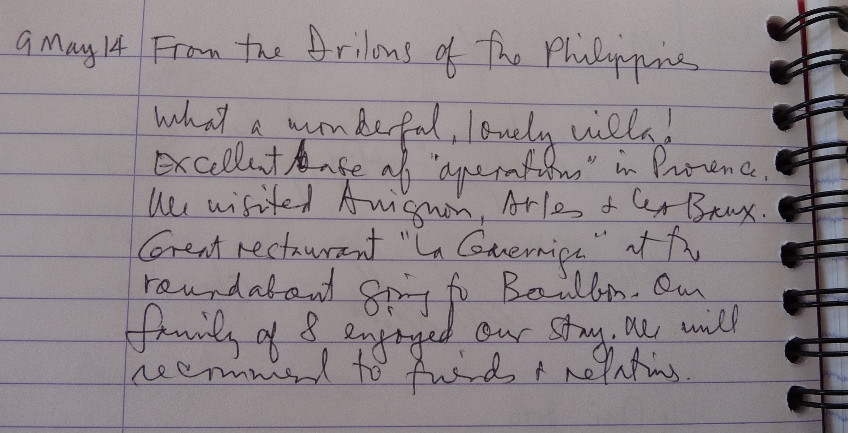 9 May 14 From the Drilons of the Philippines
What a wonderful, lovely villa!
Excellent base of "operations" in Provence.
We visited Avignon, Arles & Les Baux.
Great restaurant "La" at the
roundabout going to Boulbon. Our
family of 8 enjoyed our stay. We will
recommend to friends & relatives.